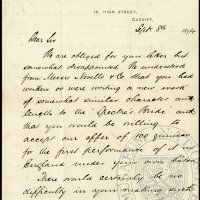 15, HIGH STREET,
CARDIFF,
Sept 8th 1884
Dear Sir
We are obliged for your letter but
somewhat disappointed. We understood
from Messrs Novello & Co that you had
written or were writing a new work
of somewhat similar character and
length to the Spectre's Bride and
that you would be willing to
accept our offer of 100 guineas
for the first performance of it in
England under your own baton
There would certainly be no
difficulty in your making such